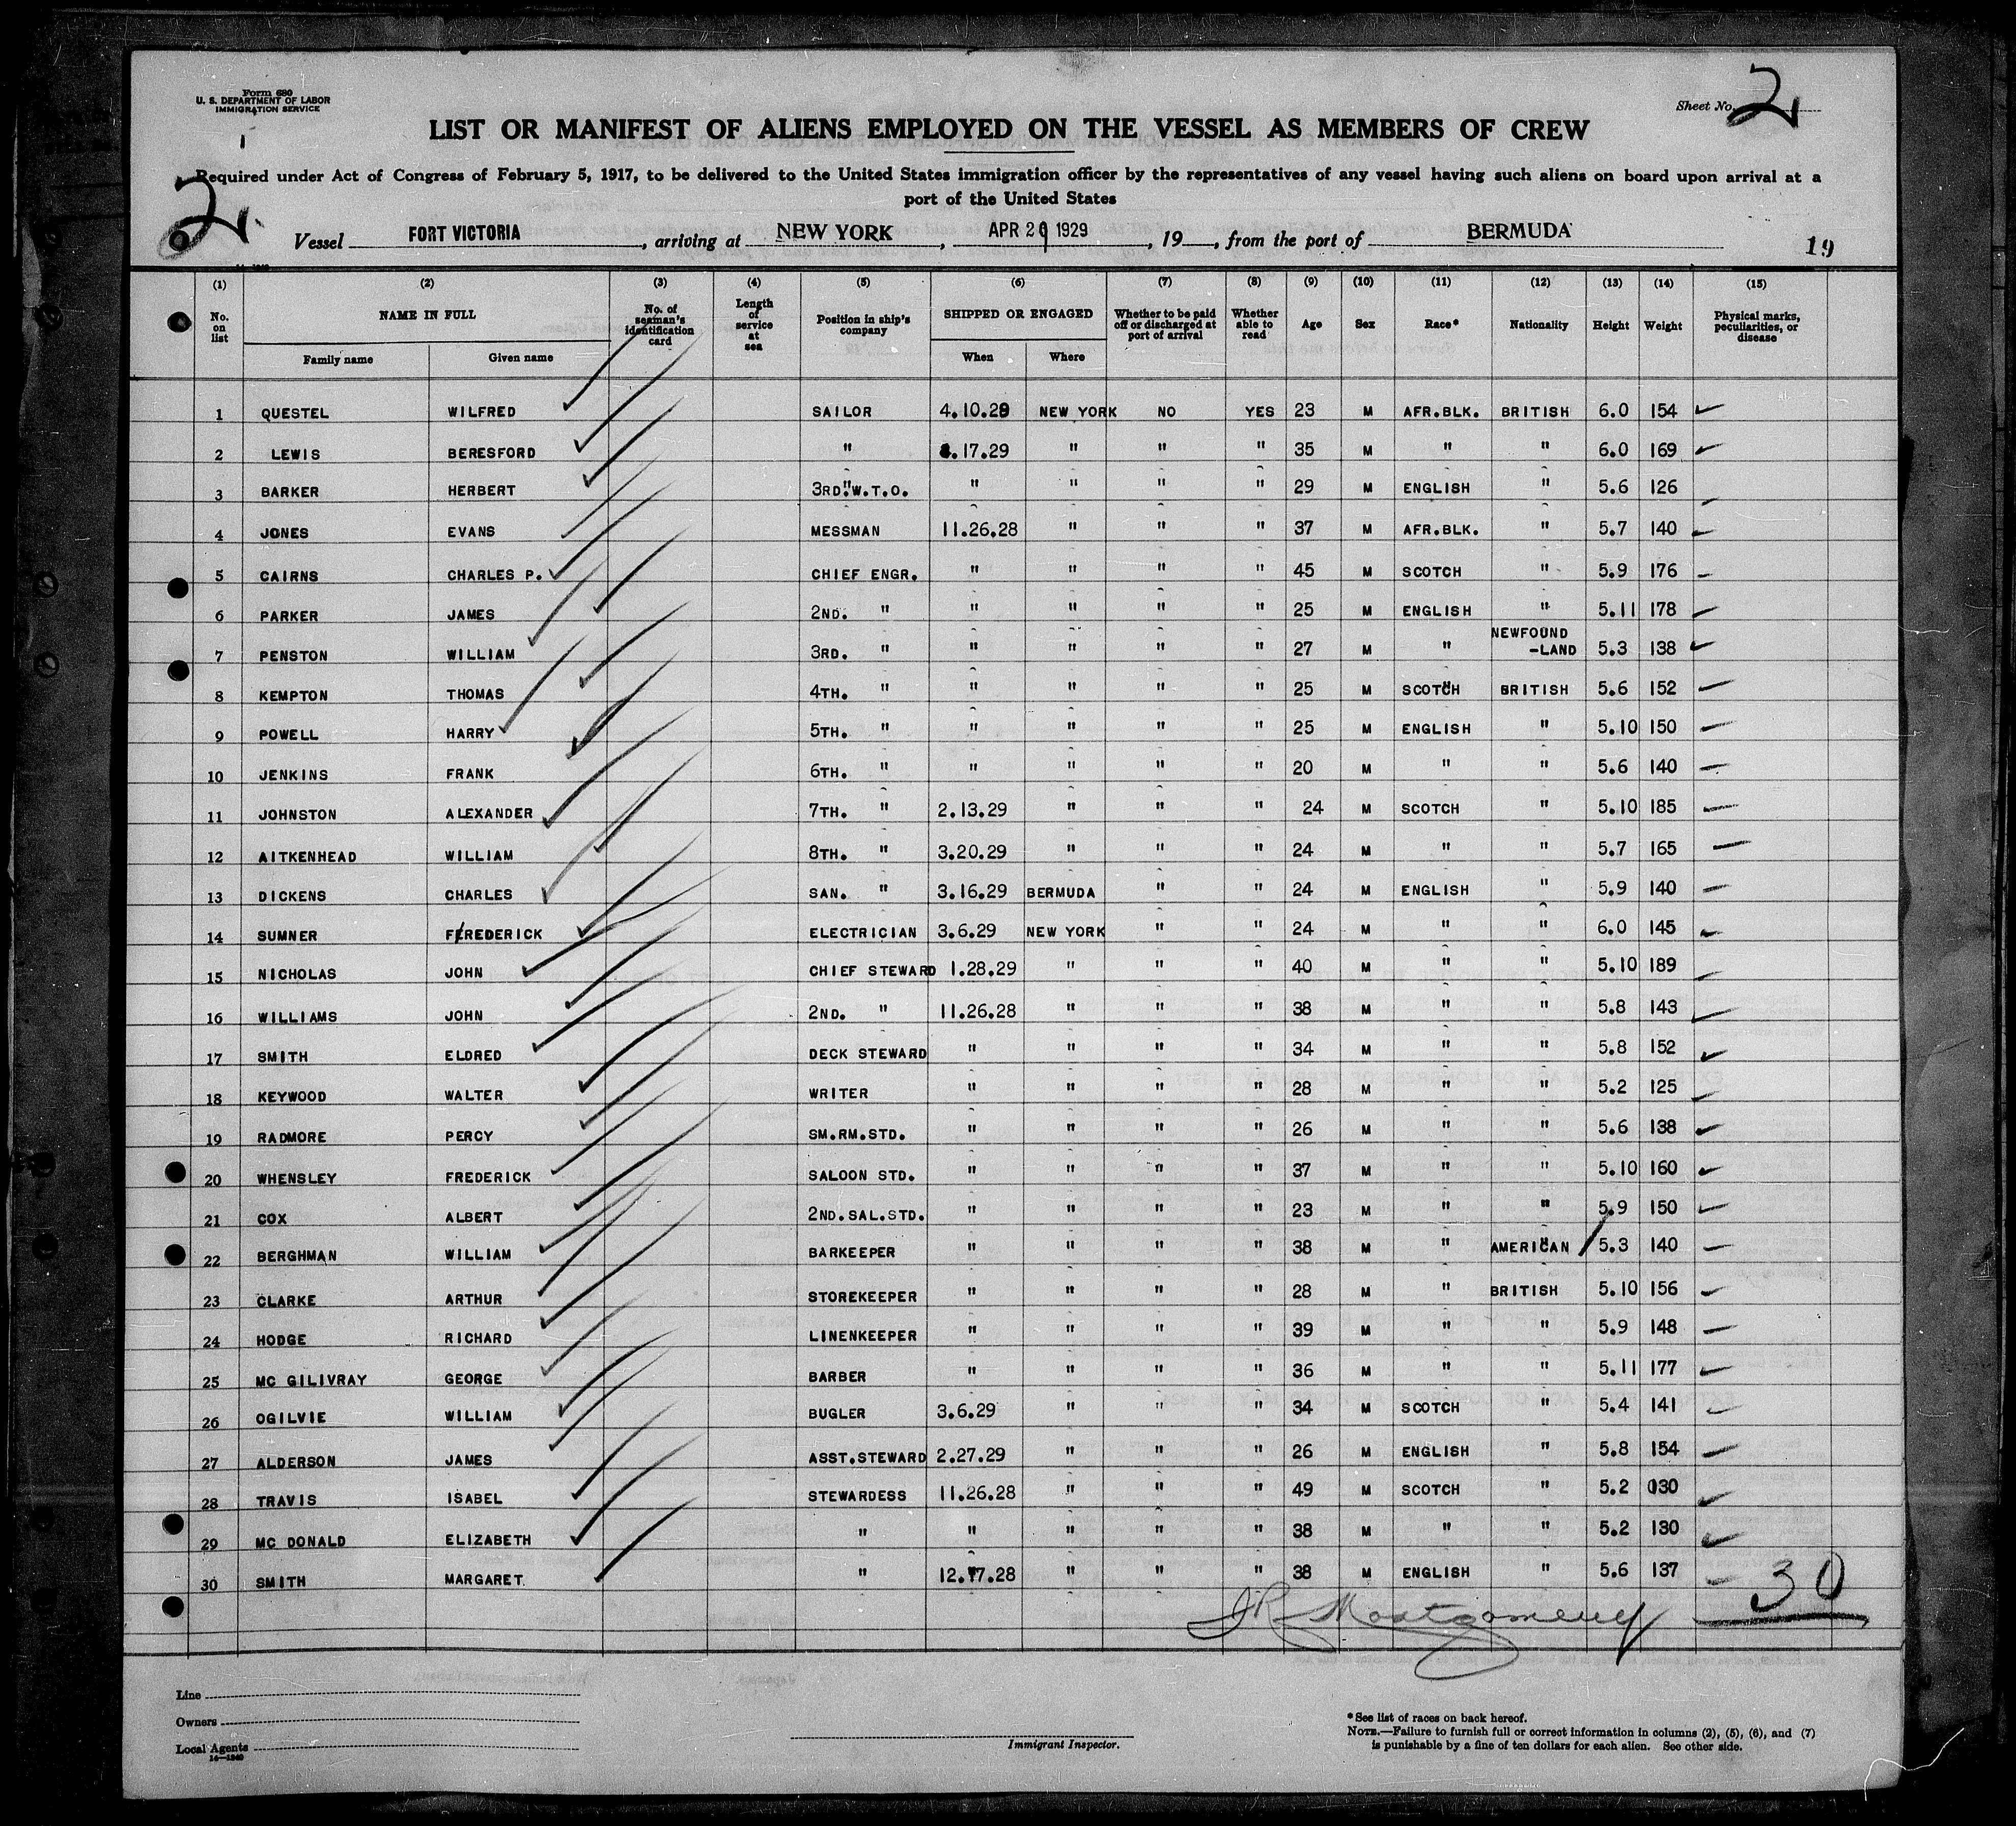 Form 680
U. S. DEPARTMENT OF LABOR
IMMIGRATION SERVICE
Sheet No. 2
LIST OR MANIFEST OF ALIENS EMPLOYED ON THE VESSEL AS MEMBERS OF CREW
Required under Act of Congress of February 5, 1917, to be delivered to the United States immigration officer by the representatives of any vessel having such aliens on board upon arrival at a
port of the United States
2
Vessel FORT VICTORIA, arriving at NEW YORK, APR 29 1929, 19, from the port of BERMUDA
19
(1) (2) (3) (4) (5) (6) (7) (8) (9) (10) (11) (12) (13) (14) (15)
No. on list NAME IN FULL Family name Given name No. of seaman's identification card Length of service at sea Position in ship's company SHIPPED OR ENGAGED When Where Whether to be paid off or discharged at port of arrival Whether able to read Age Sex Race* Nationality Height Weight Physical marks, peculiarities, or disease
1 QUESTEL WILFRED SAILOR 4.10.29 NEW YORK NO YES 23 M AFR.BLK. BRITISH 6.0 154
2 LEWIS BERESFORD " .17.29 " " " 35 M " " 6.0 169
3 BARKER HERBERT 3RD.W.T.O. " " " " 29 M ENGLISH " 5.6 126
4 JONES EVANS MESSMAN 11.26.28 " " " 37 M AFR.BLK. " 5.7 140
5 CAIRNS CHARLES P. CHIEF ENGR. " " " " 45 M SCOTCH " 5.9 176
6 PARKER JAMES 2ND. " " " " " 25 M ENGLISH " 5.11 178
7 PENSTON WILLIAM 3RD. " " " " " 27 M " NEWFOUND-LAND 5.3 138
8 KEMPTON THOMAS 4TH. " " " " " 25 M SCOTCH BRITISH 5.6 152
9 POWELL HARRY 5TH. " " " " " 25 M ENGLISH " 5.10 150
10 JENKINS FRANK 6TH. " " " " " 20 M " " 5.6 140
11 JOHNSTON ALEXANDER 7TH. " 2.13.29 " " " 24 M SCOTCH " 5.10 185
12 AITKENHEAD WILLIAM 8TH. " 3.20.29 " " " 24 M " " 5.7 165
13 DICKENS CHARLES SAN. " 3.16.29 BERMUDA " " 24 M ENGLISH " 5.9 140
14 SUMNER FREDERICK ELECTRICIAN 3.6.29 NEW YORK " " 24 M " " 6.0 145
15 NICHOLAS JOHN CHIEF STEWARD 1.28.29 " " " 40 M " " 5.10 189
16 WILLIAMS JOHN 2ND. " 11.26.28 " " " 38 M " " 5.8 143
17 SMITH ELDRED DECK STEWARD " " " " 34 M " " 5.8 152
18 KEYWOOD WALTER WRITER " " " " 28 M " " 5.2 125
19 RADMORE PERCY SM.RM.STD. " " " " 26 M " " 5.6 138
20 WHENSLEY FREDERICK SALOON STD. " " " " 37 M " " 5.10 160
21 COX ALBERT 2ND.SAL.STD. " " " " 23 M " " 5.9 150
22 BERGHMAN WILLIAM BARKEEPER " " " " 38 M " AMERICAN 5.3 140
23 CLARKE ARTHUR STOREKEEPER " " " " 28 M " BRITISH 5.10 156
24 HODGE RICHARD LINENKEEPER " " " " 39 M " " 5.9 148
25 MC GILIVRAY GEORGE BARBER " " " " 36 M " " 5.11 177
26 OGILVIE WILLIAM BUGLER 3.6.29 " " " 34 M SCOTCH " 5.4 141
27 ALDERSON JAMES ASST.STEWARD 2.27.29 " " " 26 M ENGLISH " 5.8 154
28 TRAVIS ISABEL STEWARDESS 11.26.28 " " " 49 M SCOTCH " 5.2 130
29 MC DONALD ELIZABETH " " " " " 38 M " " 5.2 130
30 SMITH MARGARET " 12.17.28 " " " 38 M ENGLISH " 5.6 137
30
JR Montgomery
Line
Owners
Local Agents
14—1240
Immigrant Inspector.
*See list of races on back hereof.
NOTE.—Failure to furnish full or correct information in columns (2), (5), (6), and (7)
is punishable by a fine of ten dollars for each alien. See other side.